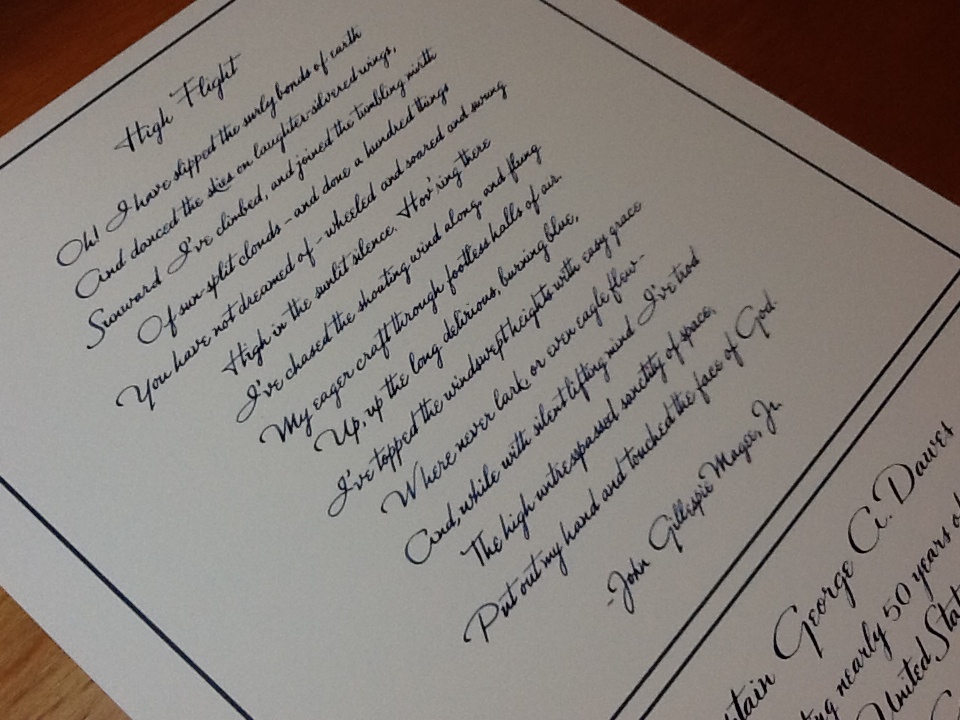 High Flight
Oh! I have slipped the surly bonds of earth
And danced the skies on laughter-silvered wings,
Sunward I've climbed, and joined the tumbling mirth
Of sun-split clouds - and done a hundred things
You have not dreamed of - wheeled and soared and swung
High in the sunlit silence. Hov'ring there
I've chased the shouting wind along, and flung
My eager craft through footless halls of air.
Up, up the long delirious, burning blue,
I've topped the windswept heights with easy grace
Where never lark, or even eagle flew -
And, while with silent lifting mind I've trod
The high untrespassed sanctity of space,
Put out my hand and touched the face of God.
-John Gillespie Magee, Jr.
George A. Dawes
nearly 50 years
United